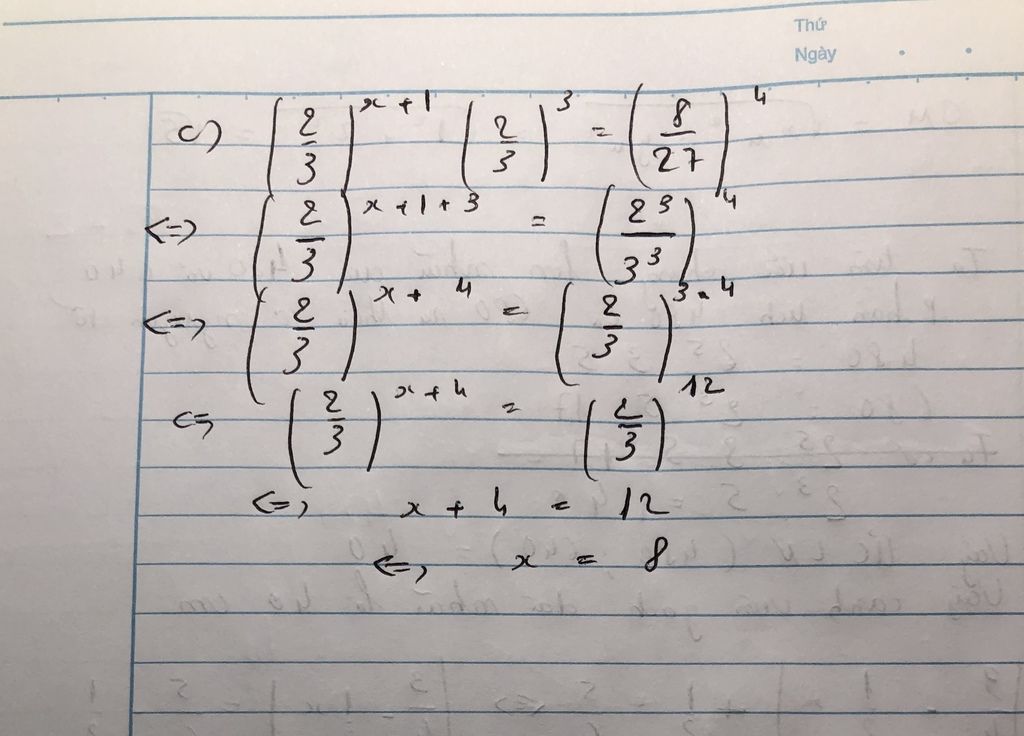 Thứ
Ngày
c) (2/3)^(x+1) (2/3)^3 = (8/27)^4
<=> (2/3)^(x+1+3) = (2^3/3^3)^4
<=> (2/3)^(x+4) = (2/3)^(3.4)
<=> (2/3)^(x+4) = (2/3)^12
<=> x + 4 = 12
<=> x = 8